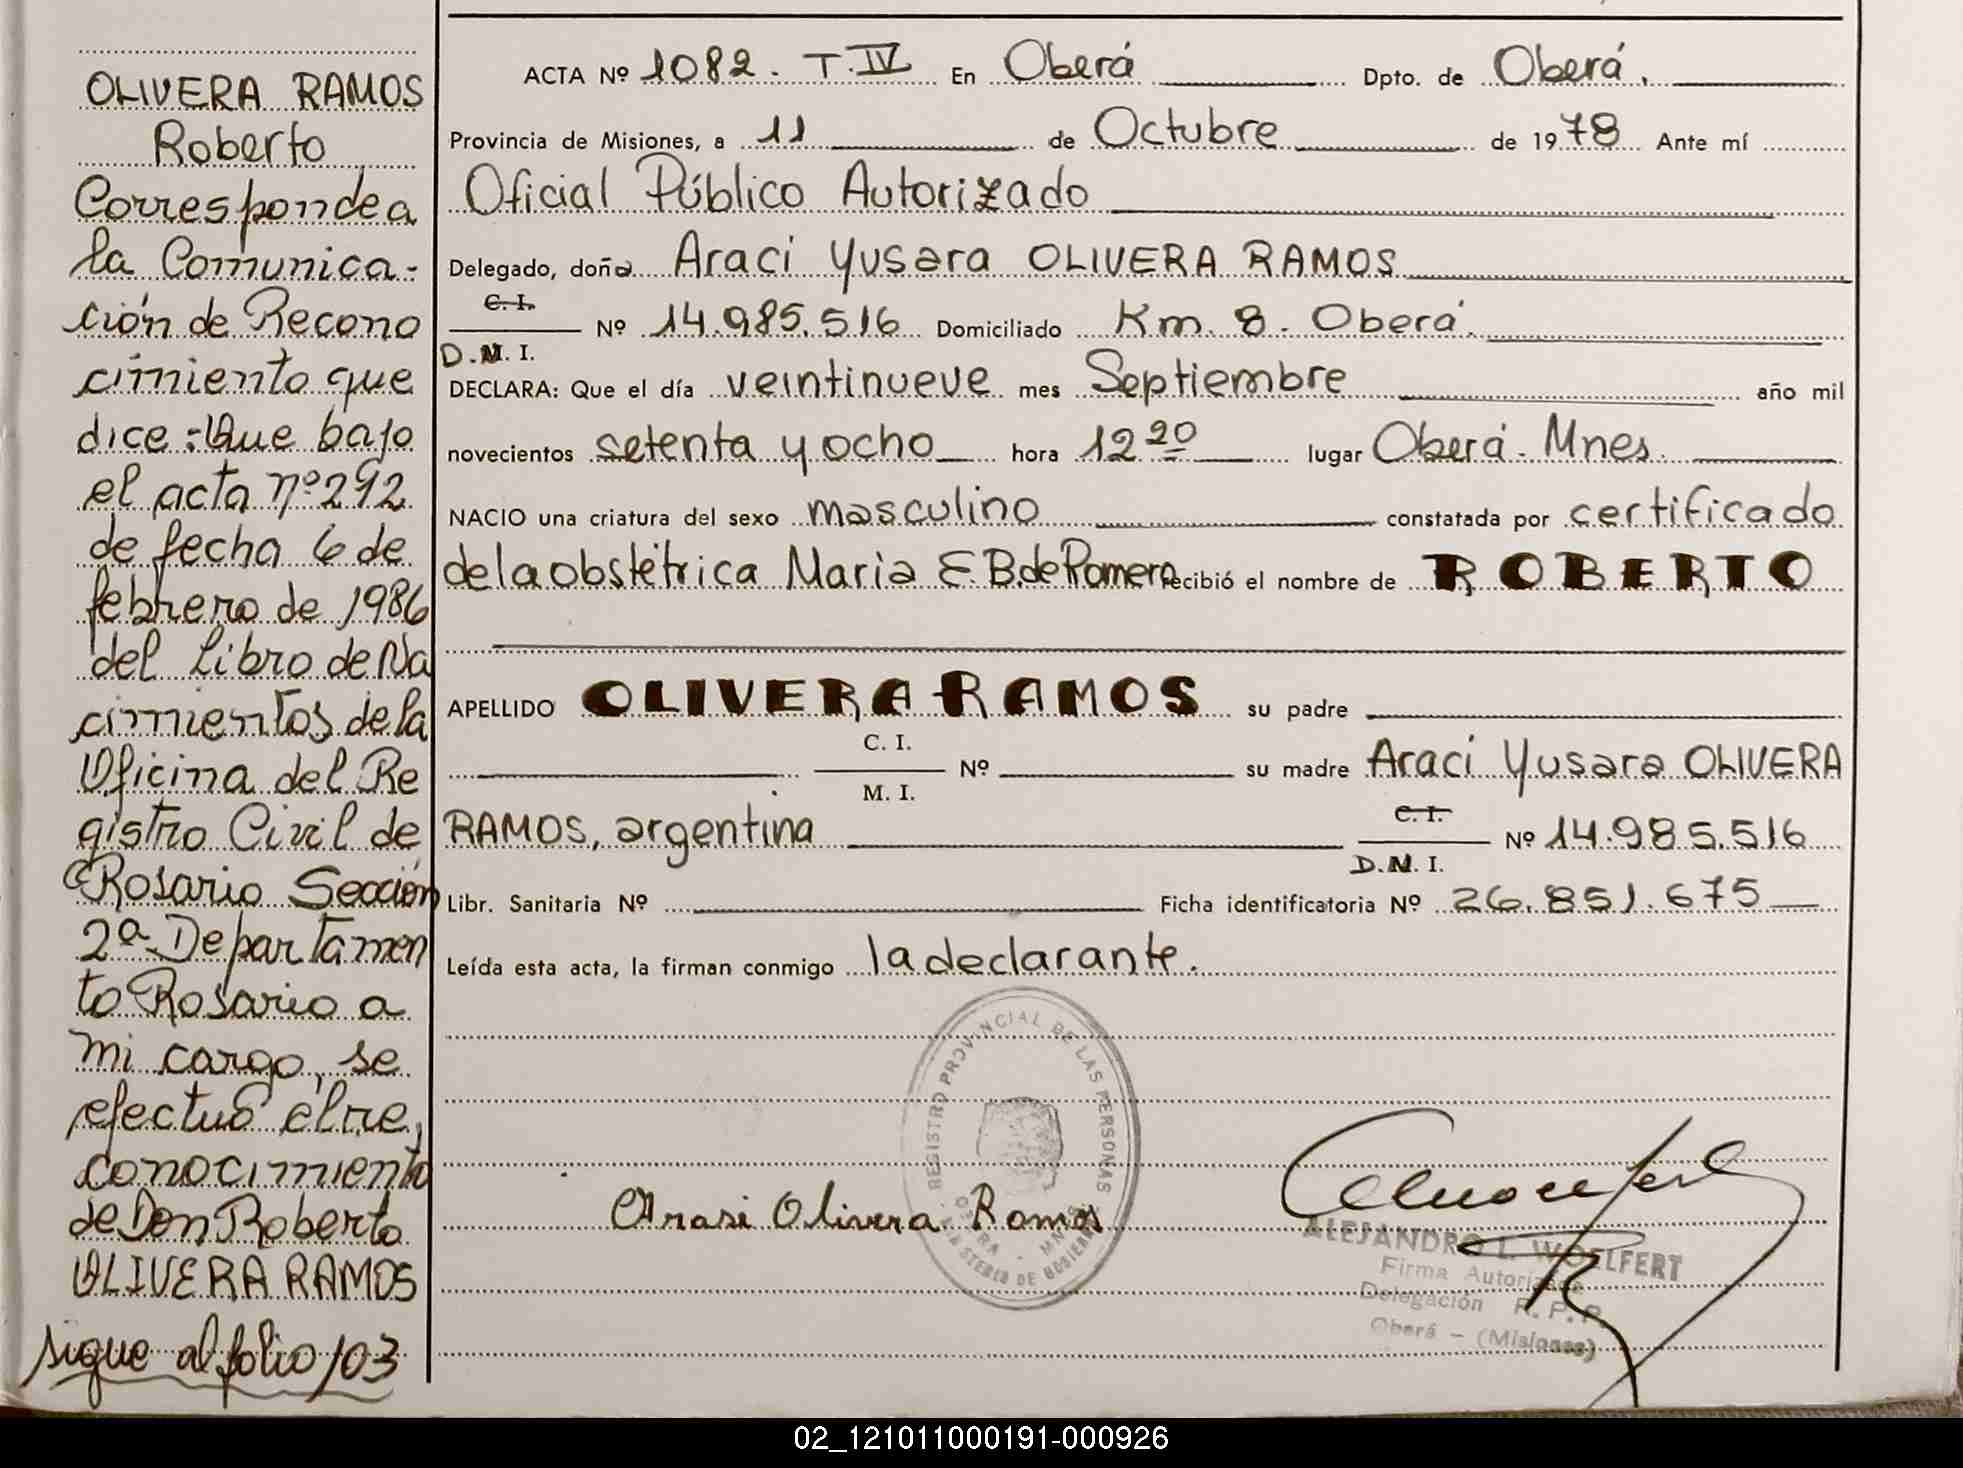 OLIVERA RAMOS
Roberto
Corresponde a
la Comunica-
ción de Recono
cimiento que
dice: Que bajo
el acta nº 292
de fecha 6 de
febrero de 1986
del Libro de Na
cimientos de la
Oficina del Re
gistro Civil de
Rosario Sección
2ª Departamen
to Rosario a
mi cargo, se
efectuó el re,
conocimiento
de Don Roberto
OLIVERA RAMOS
sigue al folio 103
ACTA Nº 1082. T.IV En Oberá Dpto. de Oberá.
Provincia de Misiones, a 11 de Octubre de 1978 Ante mí
Oficial Público Autorizado
Delegado, doña Araci Yusara OLIVERA RAMOS
C. I.
Nº 14.985.516 Domiciliado Km. 8. Oberá.
D.M. I.
DECLARA: Que el día veintinueve mes Septiembre año mil
novecientos setenta y ocho hora 12 20 lugar Oberá. Mnes.
NACIO una criatura del sexo masculino constatada por certificado
de la obstétrica Maria E. B. de Romero recibió el nombre de ROBERTO
APELLIDO OLIVERA RAMOS su padre
C. I.
Nº su madre Araci Yusara OLIVERA
M. I.
RAMOS, argentina C. I. Nº 14.985.516
D.M. I.
Libr. Sanitaria Nº Ficha identificatoria Nº 26.851.675
Leída esta acta, la firman conmigo la declarante.
REGISTRO PROVINCIAL DE LAS PERSONAS
OBERA - MNES
Arasi Olivera Ramos
ALEJANDRO L. WOELFERT
Firma Autorizada
Delegación R. P. P.
Oberá - (Misiones)
02_121011000191-000926